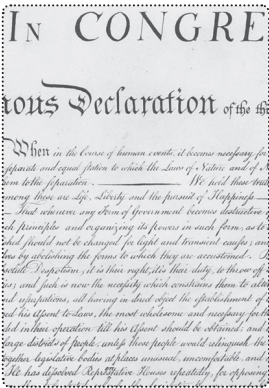 IN CONGRE
mous Declaration of the thi
When in the Course of human events, it becomes necessary for
separate and equal station to which the Laws of Nature and of N
them to the separation. We hold these truth
among these are Life, Liberty and the pursuit of Happiness
That whenever any Form of Government becomes destructive
ch principles and organizing its powers in such form, as to
shed should not be changed for light and transient causes; an
lves by abolishing the forms to which they are accustomed.
solute Despotism, it is their right, it is their duty, to throw off
es; and such is now the necessity which constrains them to alte
and usurpations, all having in direct object the establishment of
ed his Assent to Laws, the most wholesome and necessary for th
ded in their operation till his Assent should be obtained; and
large districts of people, unless those people would relinquish the
together legislative bodies at places unusual, uncomfortable, and
He has dissolved Representative Houses repeatedly, for opposing